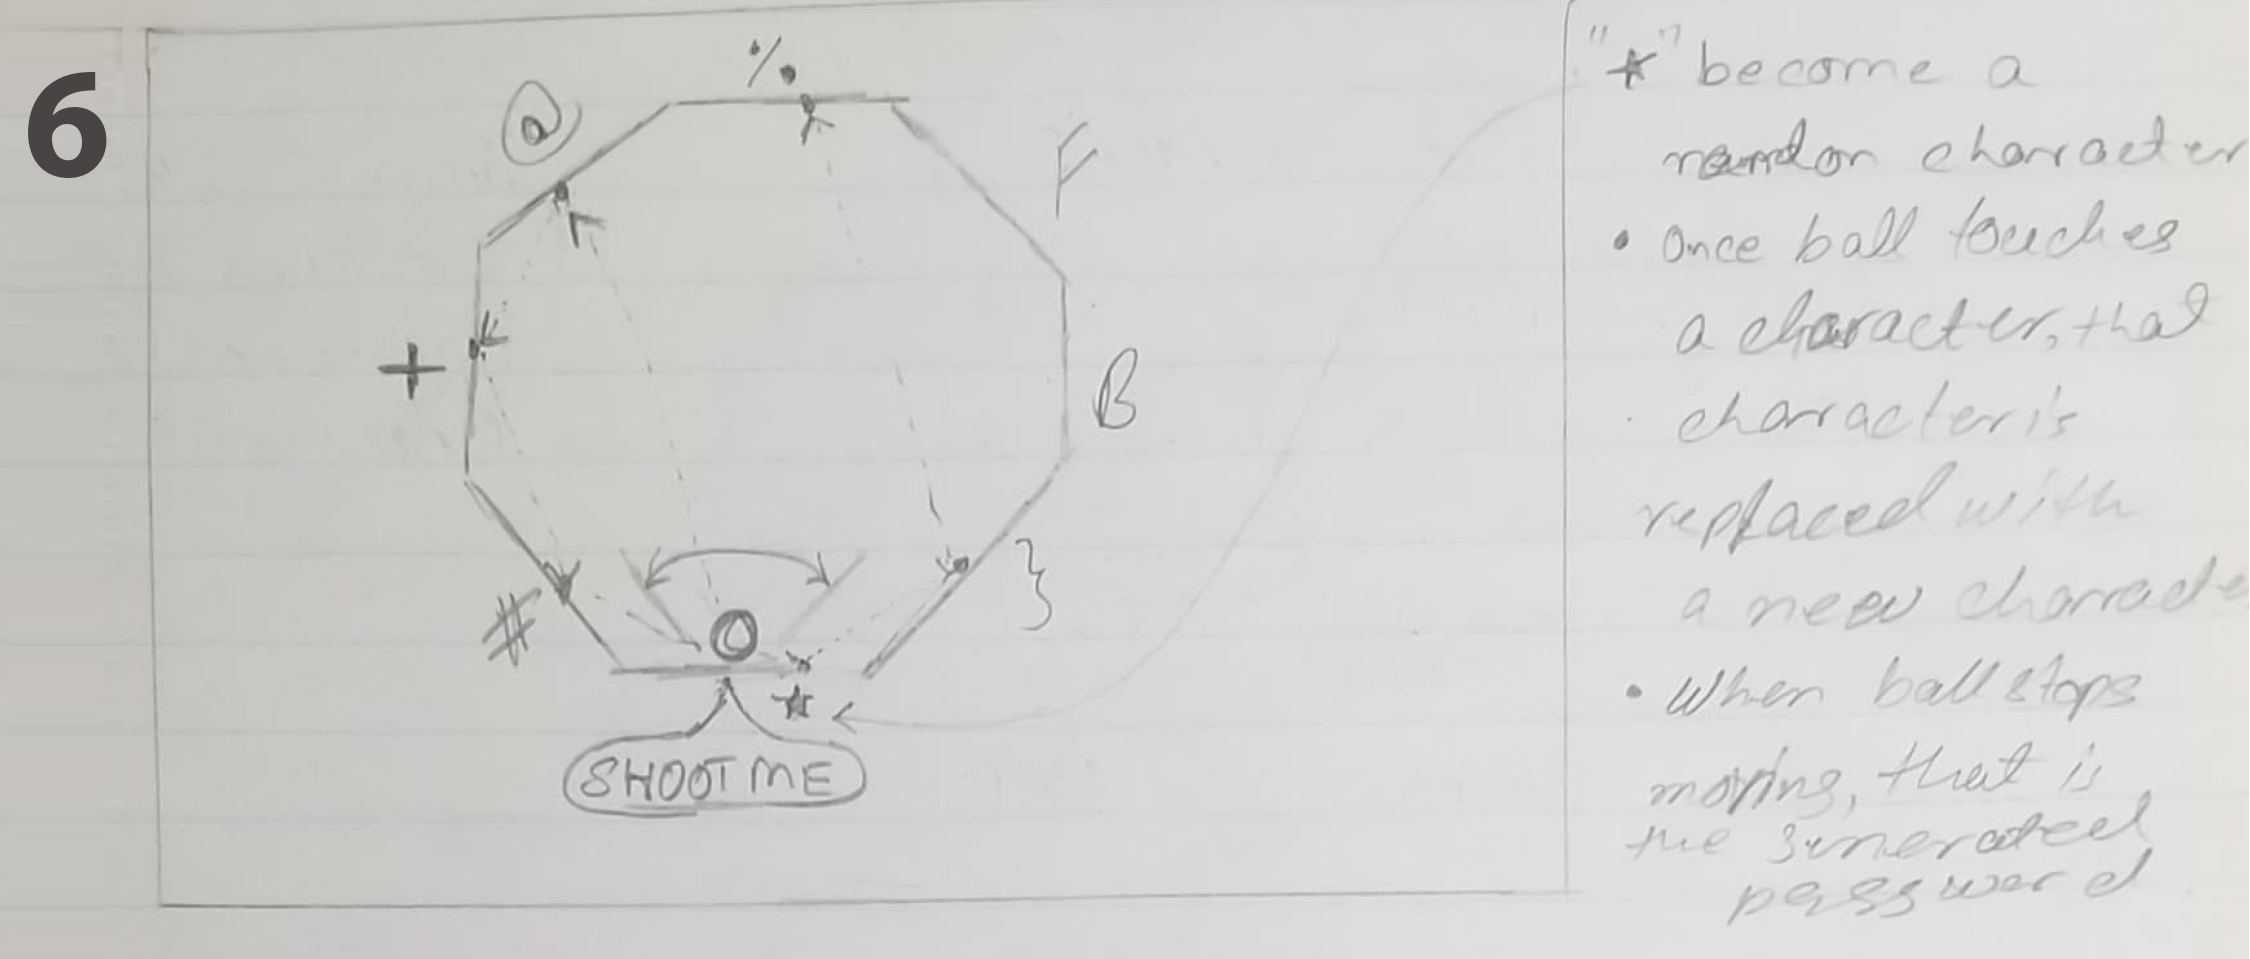 6
%
@
F
+
B
#
}
O
*
SHOOT ME
"*" become a
random character
• Once ball touches
a character, that
character is
replaced with
a new characte
• When ball stops
moving, that is
the generated
password